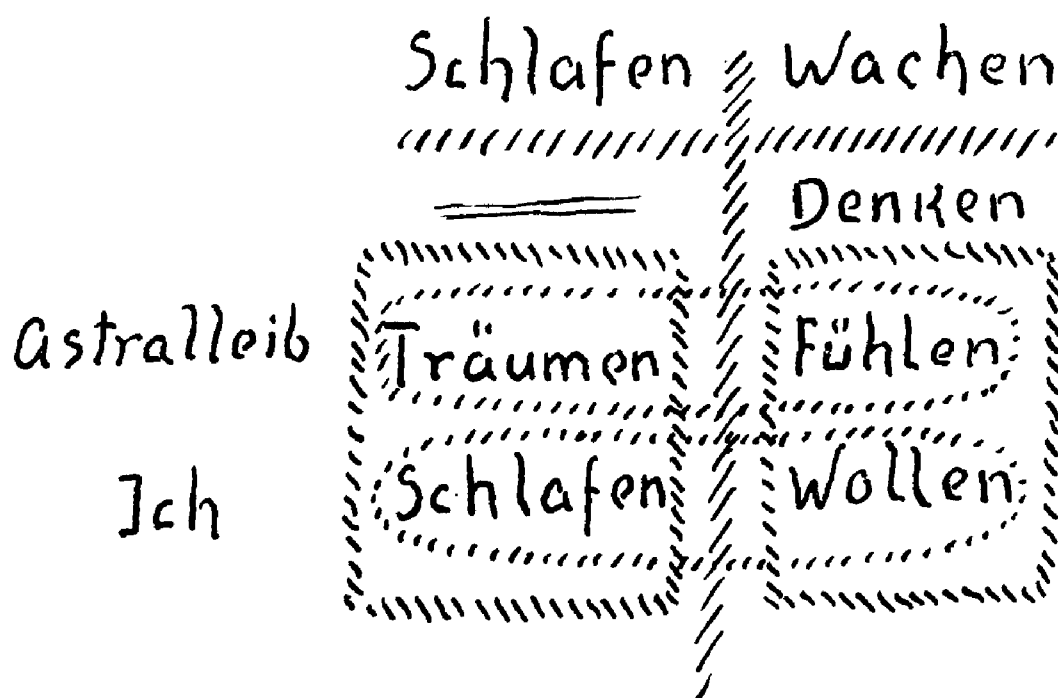 Schlafen Wachen
Denken
Astralleib Träumen Fühlen
Ich Schlafen Wollen